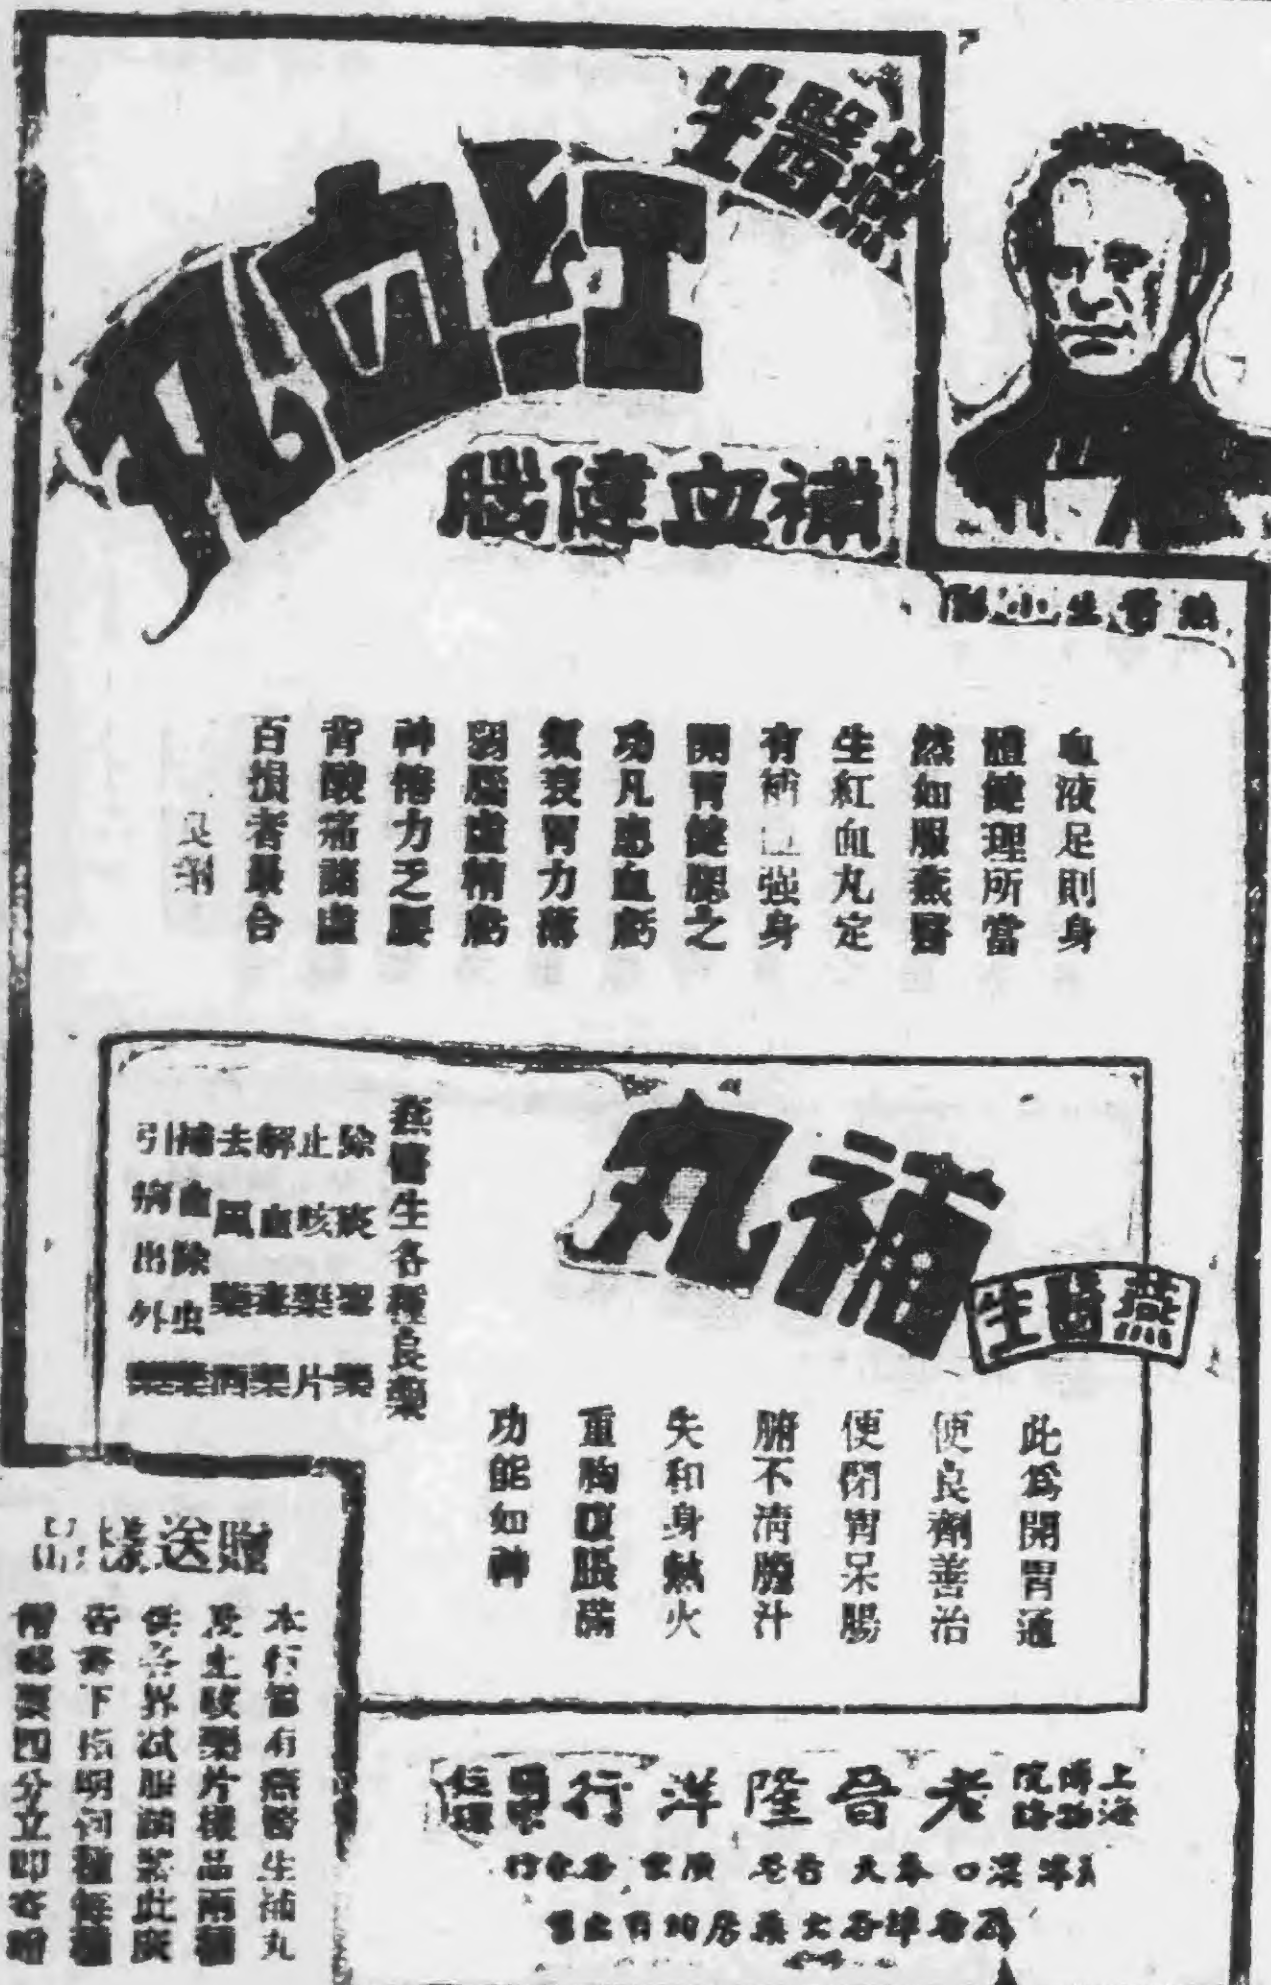 燕醫生
紅血丸
補血健腦
燕醫生小影
血液足則身
體健理所當
然如服燕醫
生紅血丸定
有補血强身
開胃健腦之
功凡患血虧
氣衰胃力薄
弱腦虛精虧
神倦力乏腰
背酸痛諸虛
百損者最合
良劑
燕醫生
補丸
此爲開胃通
便良劑善治
便閉胃呆腸
腑不清膽汁
失和身熱火
重胸腹脹滿
功能如神
燕醫生各種良藥
除痰藥
止咳藥片
解血毒藥
去風藥酒
補血除虫藥
引病出外藥
贈送樣品
本行備有燕醫生補丸
及止咳藥片樣品兩種
供各界試服請將此廣
告寄下指明何種每種
附郵票四分立即寄奉
上海博物院路
老晉隆洋行
各埠各大藥房均有出售